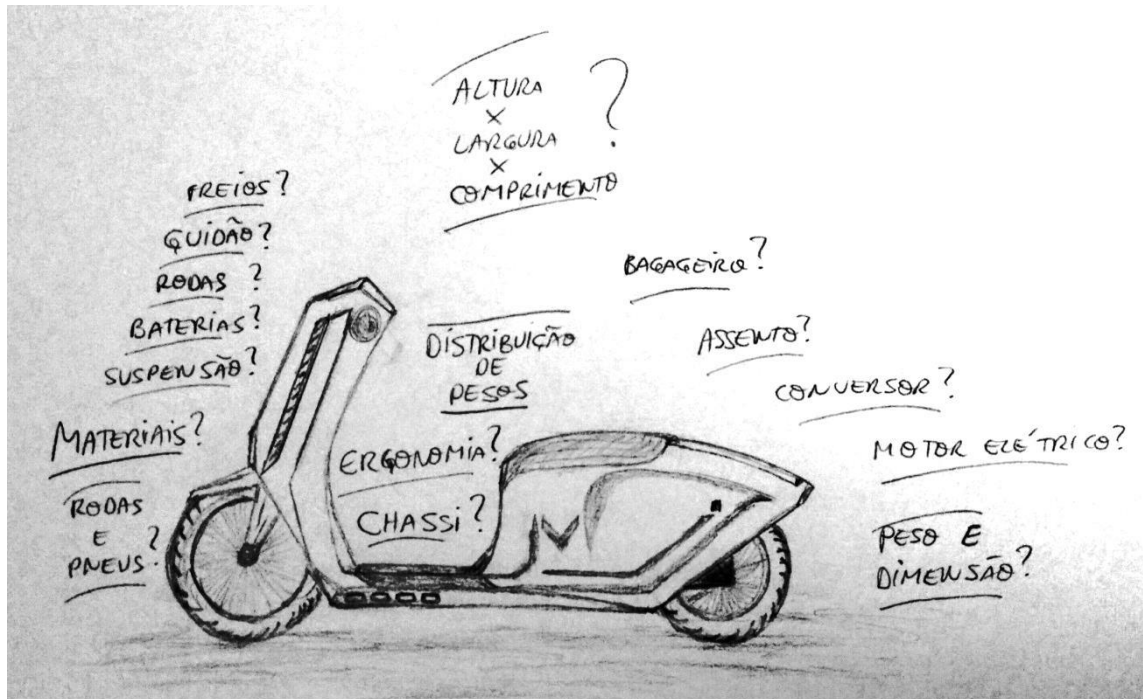 ALTURA
X
LARGURA
X
COMPRIMENTO
?
FREIOS?
GUIDÃO?
RODAS ?
BATERIAS?
SUSPENSÃO?
MATERIAIS?
RODAS
E
PNEUS?
DISTRIBUIÇÃO
DE
PESOS
ERGONOMIA?
CHASSI?
BAGAGEIRO?
ASSENTO?
CONVERSOR?
MOTOR ELÉTRICO?
PESO E
DIMENSÃO?
M